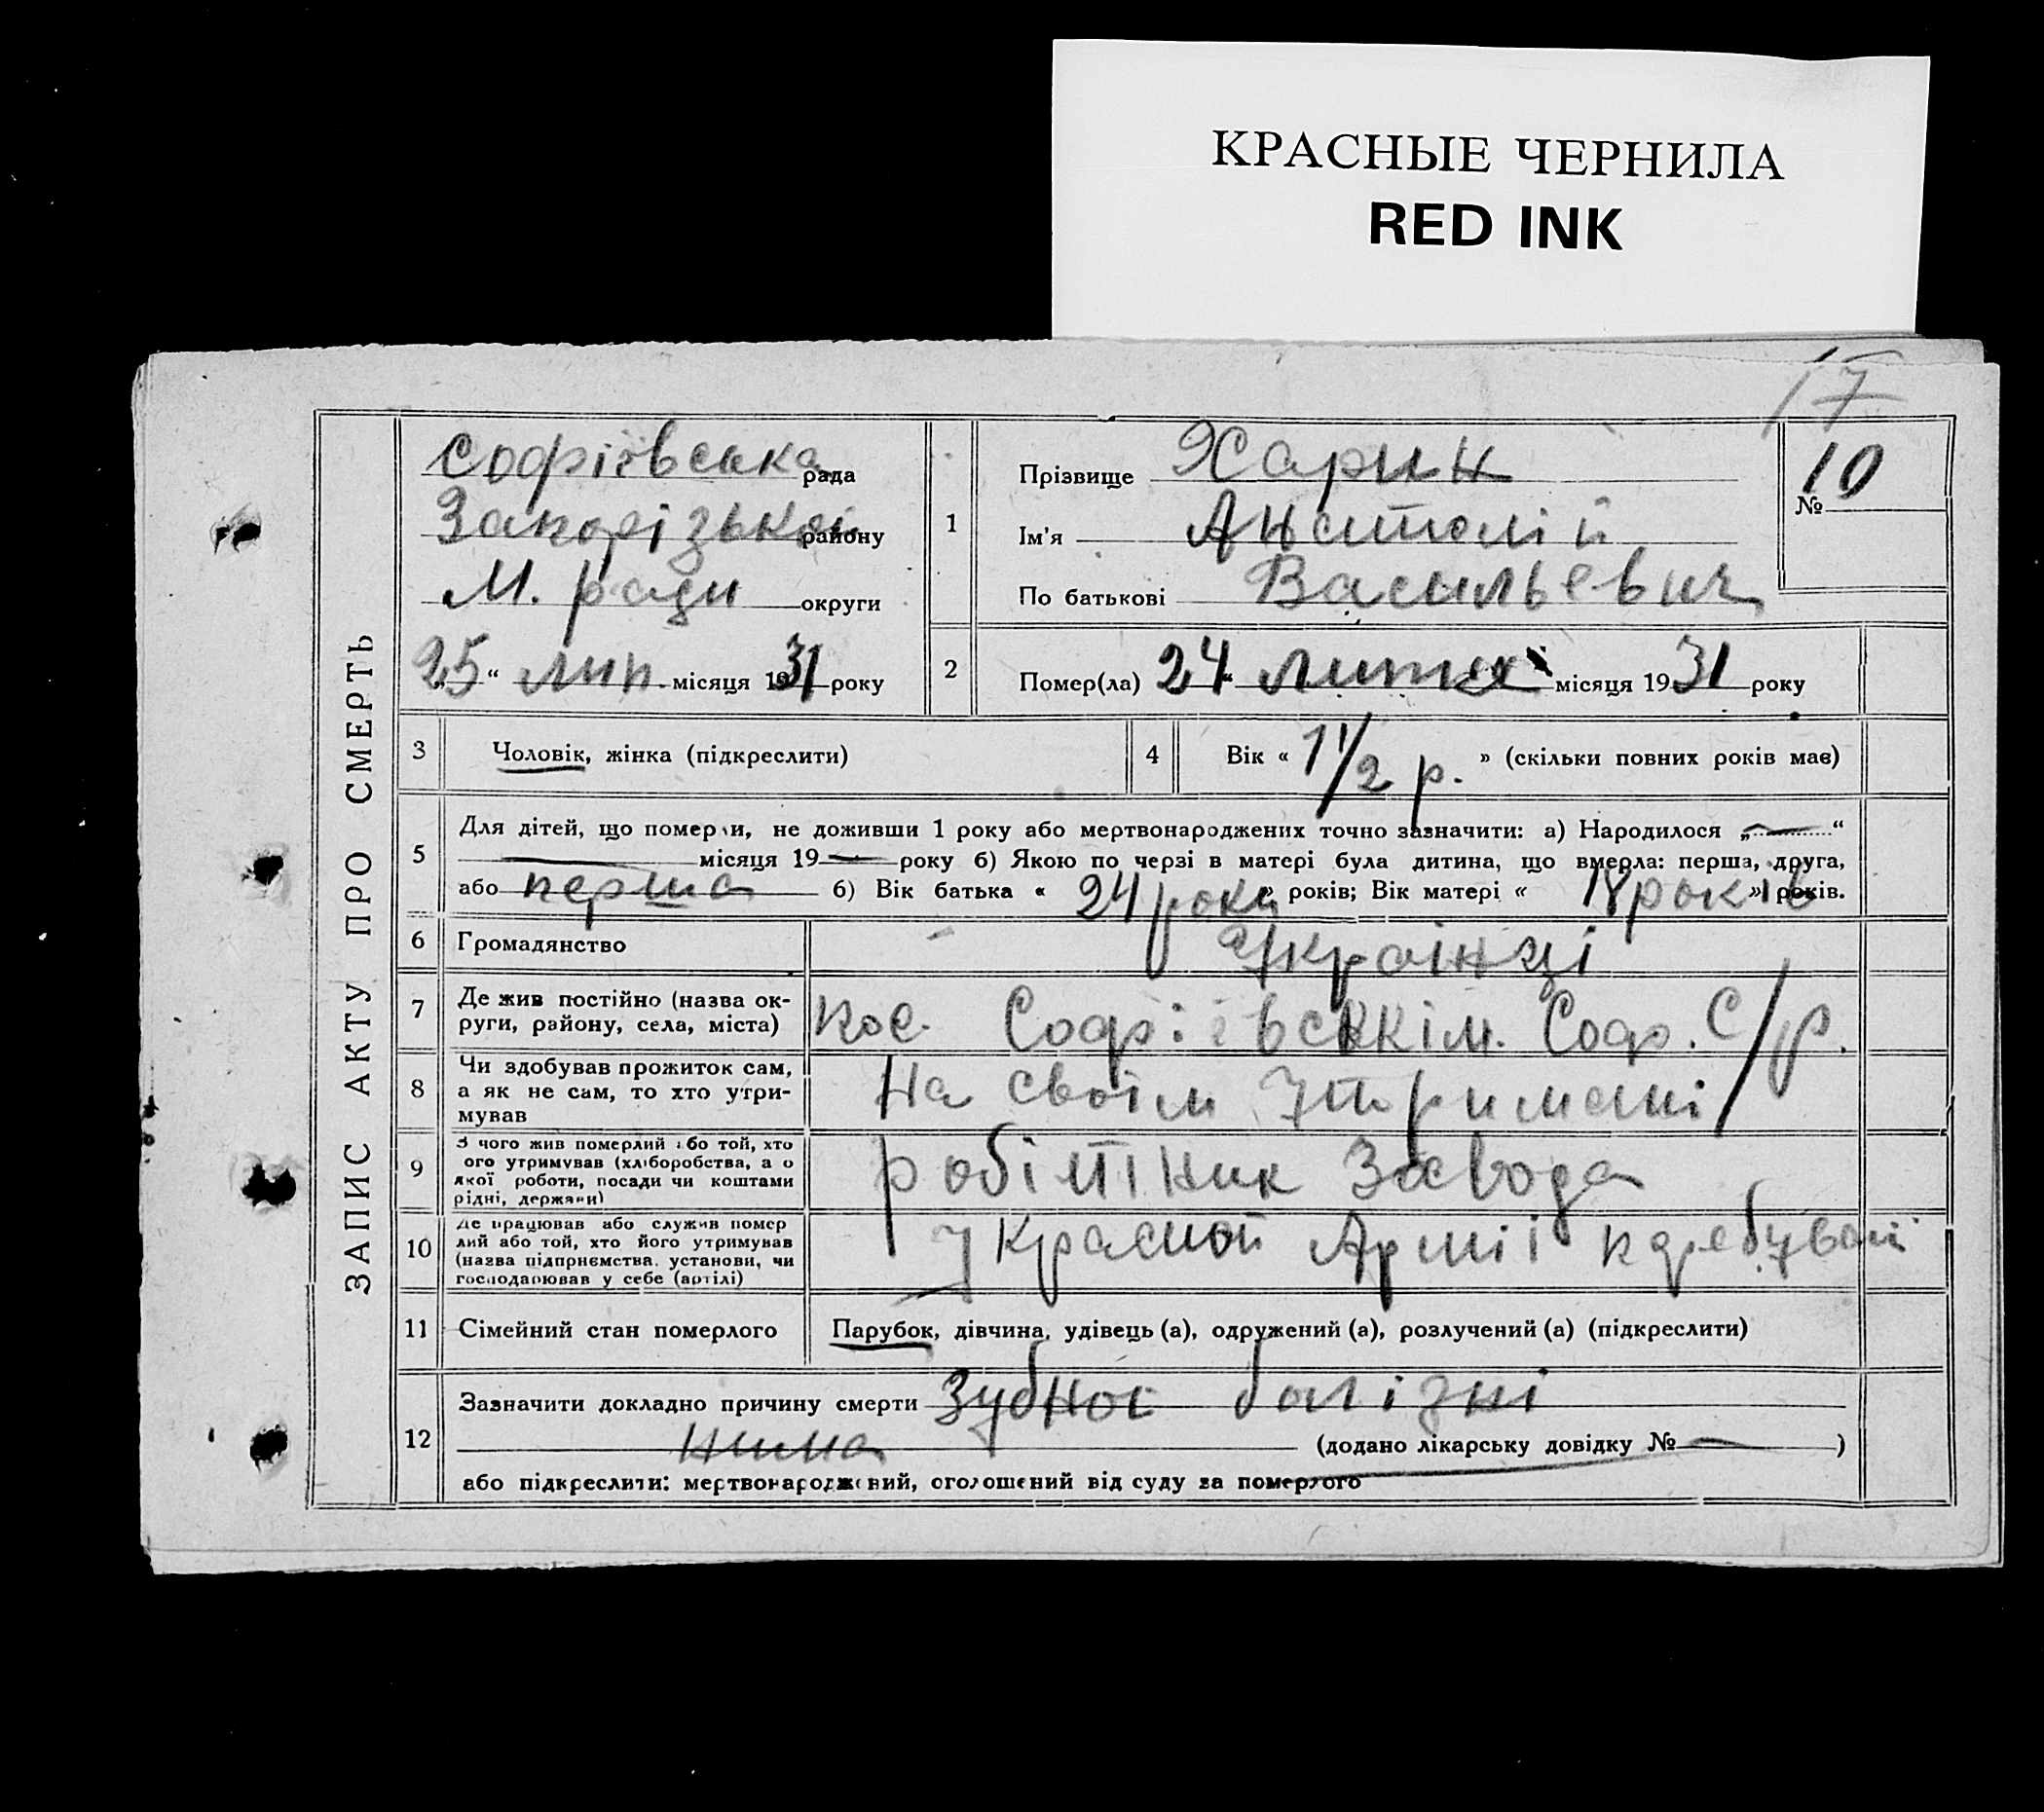 КРАСНЫЕ ЧЕРНИЛА
RED INK
17
ЗАПИС АКТУ ПРО СМЕРТЬ
Софіївська рада
Запорізької району
М. ради округи
„25“ лип місяця 1931 року
1
Прізвище Харин
Ім'я Анатолій
По батькові Васильевич
№ 10
2
Помер(ла) 24 “ лютого місяця 1931 року
3
Чоловік, жінка (підкреслити)
4
Вік « 1 1/2 р. » (скільки повних років має)
5
Для дітей, що померли, не доживши 1 року або мертвонароджених точно зазначити: а) Народилося „ — “
— місяця 19 — року б) Якою по черзі в матері була дитина, що вмерла: перша, друга,
або перша б) Вік батька « 24 роки » років; Вік матері « 18 років » років.
6
Громадянство
Українці
7
Де жив постійно (назва округи, району, села, міста)
Софіївськім. Соф. С/р.
8
Чи здобував прожиток сам,
а як не сам, то хто утримував
На своїм утримані
9
З чого жив померлий або той, хто
ого утримував (хліборобства, а о
якої роботи, посади чи коштами
рідні, держави)
робітник Завода
10
Де працював або служив помер
лий або той, хто його утримував
(назва підприємства, установи, чи
господарював у себе (артілі)
у Красной Армії
11
Сімейний стан померлого
Парубок, дівчина, удівець (а), одружений (а), розлучений (а) (підкреслити)
12
Зазначити докладно причину смерти Зубної болізні
нима (додано лікарську довідку № — )
або підкреслити: мертвонароджений, оголошений від суду за померлого